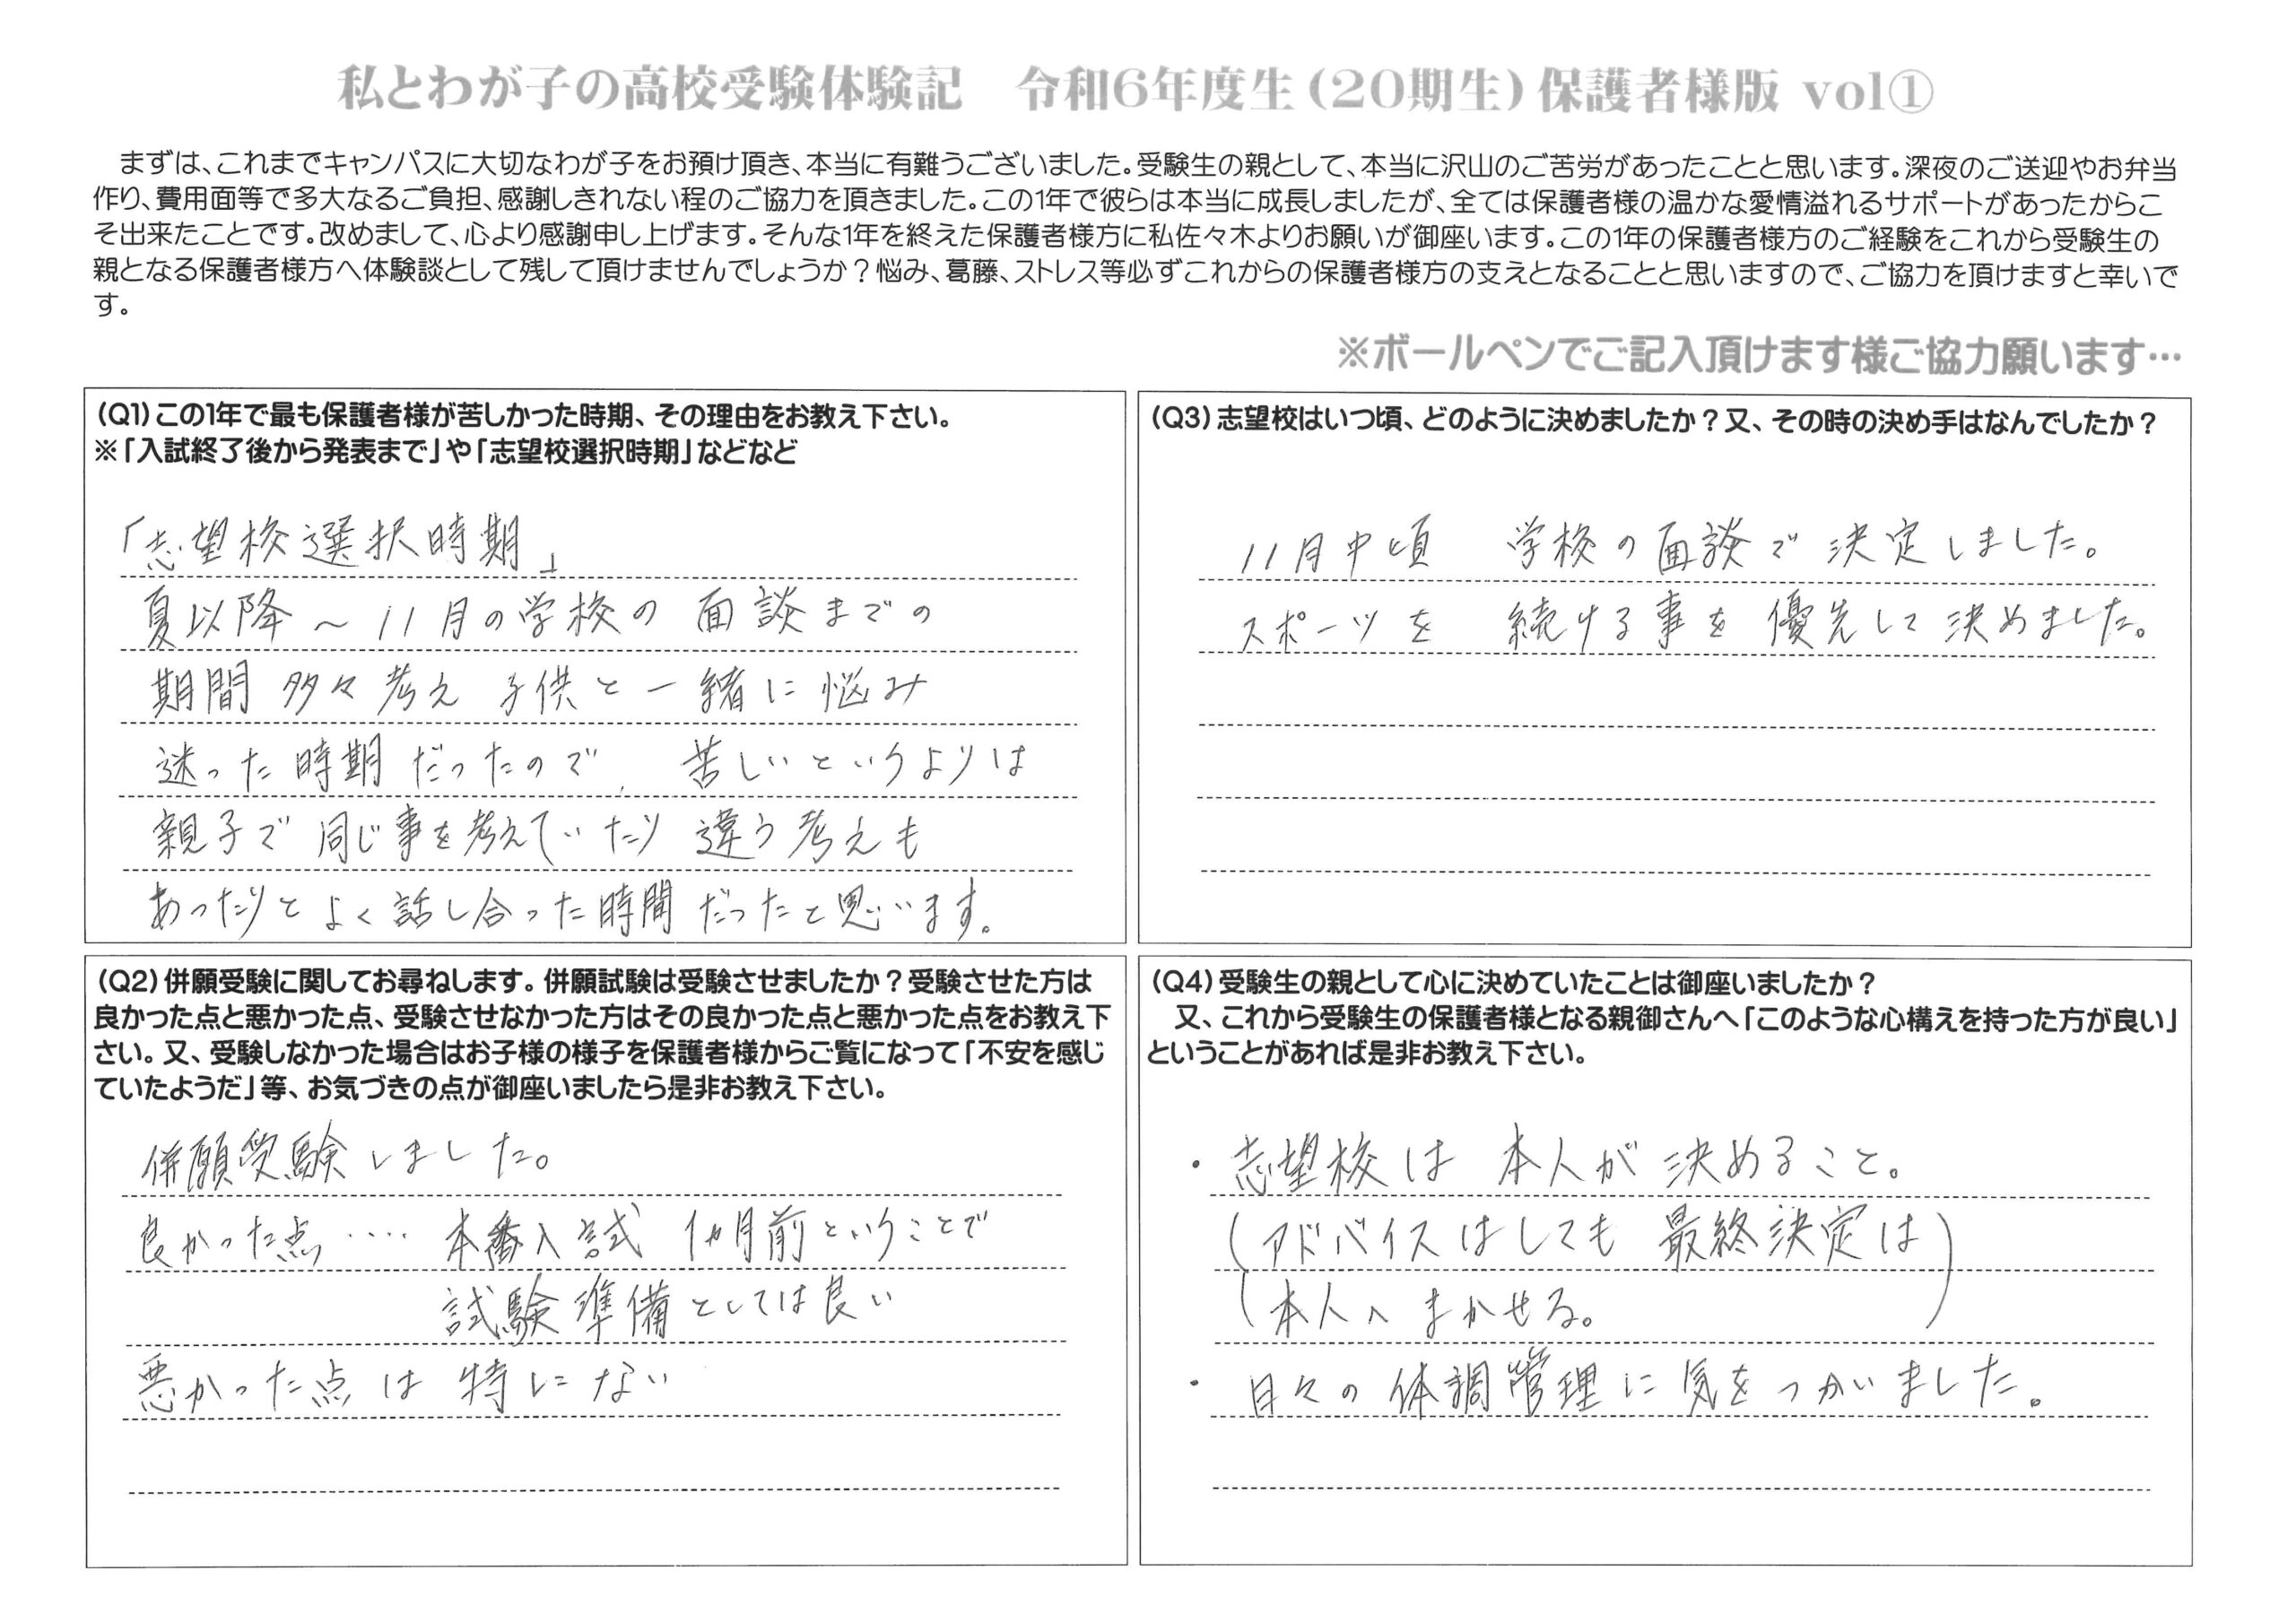 私とわが子の高校受験体験記　令和6年度生(20期生)保護者様版 vol①
まずは、これまでキャンパスに大切なわが子をお預け頂き、本当に有難うございました。受験生の親として、本当に沢山のご苦労があったことと思います。深夜のご送迎やお弁当
作り、費用面等で多大なるご負担、感謝しきれない程のご協力を頂きました。この1年で彼らは本当に成長しましたが、全ては保護者様の温かな愛情溢れるサポートがあったからこ
そ出来たことです。改めまして、心より感謝申し上げます。そんな1年を終えた保護者様方に私佐々木よりお願いが御座います。この1年の保護者様方のご経験をこれから受験生の
親となる保護者様方へ体験談として残して頂けませんでしょうか？悩み、葛藤、ストレス等必ずこれからの保護者様方の支えとなることと思いますので、ご協力を頂けますと幸いで
す。
※ボールペンでご記入頂けます様ご協力願います…
(Q1)この1年で最も保護者様が苦しかった時期、その理由をお教え下さい。
※「入試終了後から発表まで」や「志望校選択時期」などなど
「志望校選択時期」
夏以降～11月の学校の面談までの
期間 多々考え 子供と一緒に悩み
迷った時期だったので、苦しいというよりは
親子で同じ事を考えていたり 違う考えも
あったりと よく話し合った時間だったと思います。
(Q2)併願受験に関してお尋ねします。併願試験は受験させましたか？受験させた方は
良かった点と悪かった点、受験させなかった方はその良かった点と悪かった点をお教え下
さい。又、受験しなかった場合はお子様の様子を保護者様からご覧になって「不安を感じ
ていたようだ」等、お気づきの点が御座いましたら是非お教え下さい。
併願受験しました。
良かった点‥‥ 本番入試 1ヵ月前ということで
試験準備としては良い
悪かった点は 特にない
(Q3)志望校はいつ頃、どのように決めましたか？又、その時の決め手はなんでしたか？
11月中頃　学校の面談で決定しました。
スポーツを 続ける事を優先して決めました。
(Q4)受験生の親として心に決めていたことは御座いましたか？
又、これから受験生の保護者様となる親御さんへ「このような心構えを持った方が良い」
ということがあれば是非お教え下さい。
・志望校は 本人が決めること。
(アドバイスはしても 最終決定は
本人へまかせる。)
・日々の体調管理に気をつかいました。